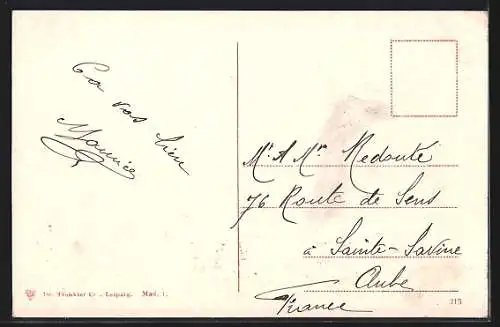 Ça vas bien
Maurice
Mr & Mme Redouté
76 Route de Sens
à Sainte-Savine
Aube
France
Dr. Trenkler Co., Leipzig. Mad. 1.
313